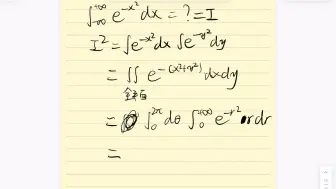 ∫_{-∞}^{+∞} e^{-x²}dx = ? = I
I² = ∫e^{-x²}dx ∫e^{-y²}dy
= ∬ e^{-(x²+y²)}dxdy
全平面
= ∫_0^{2π} dθ ∫_0^{+∞} e^{-r²} rdr
=